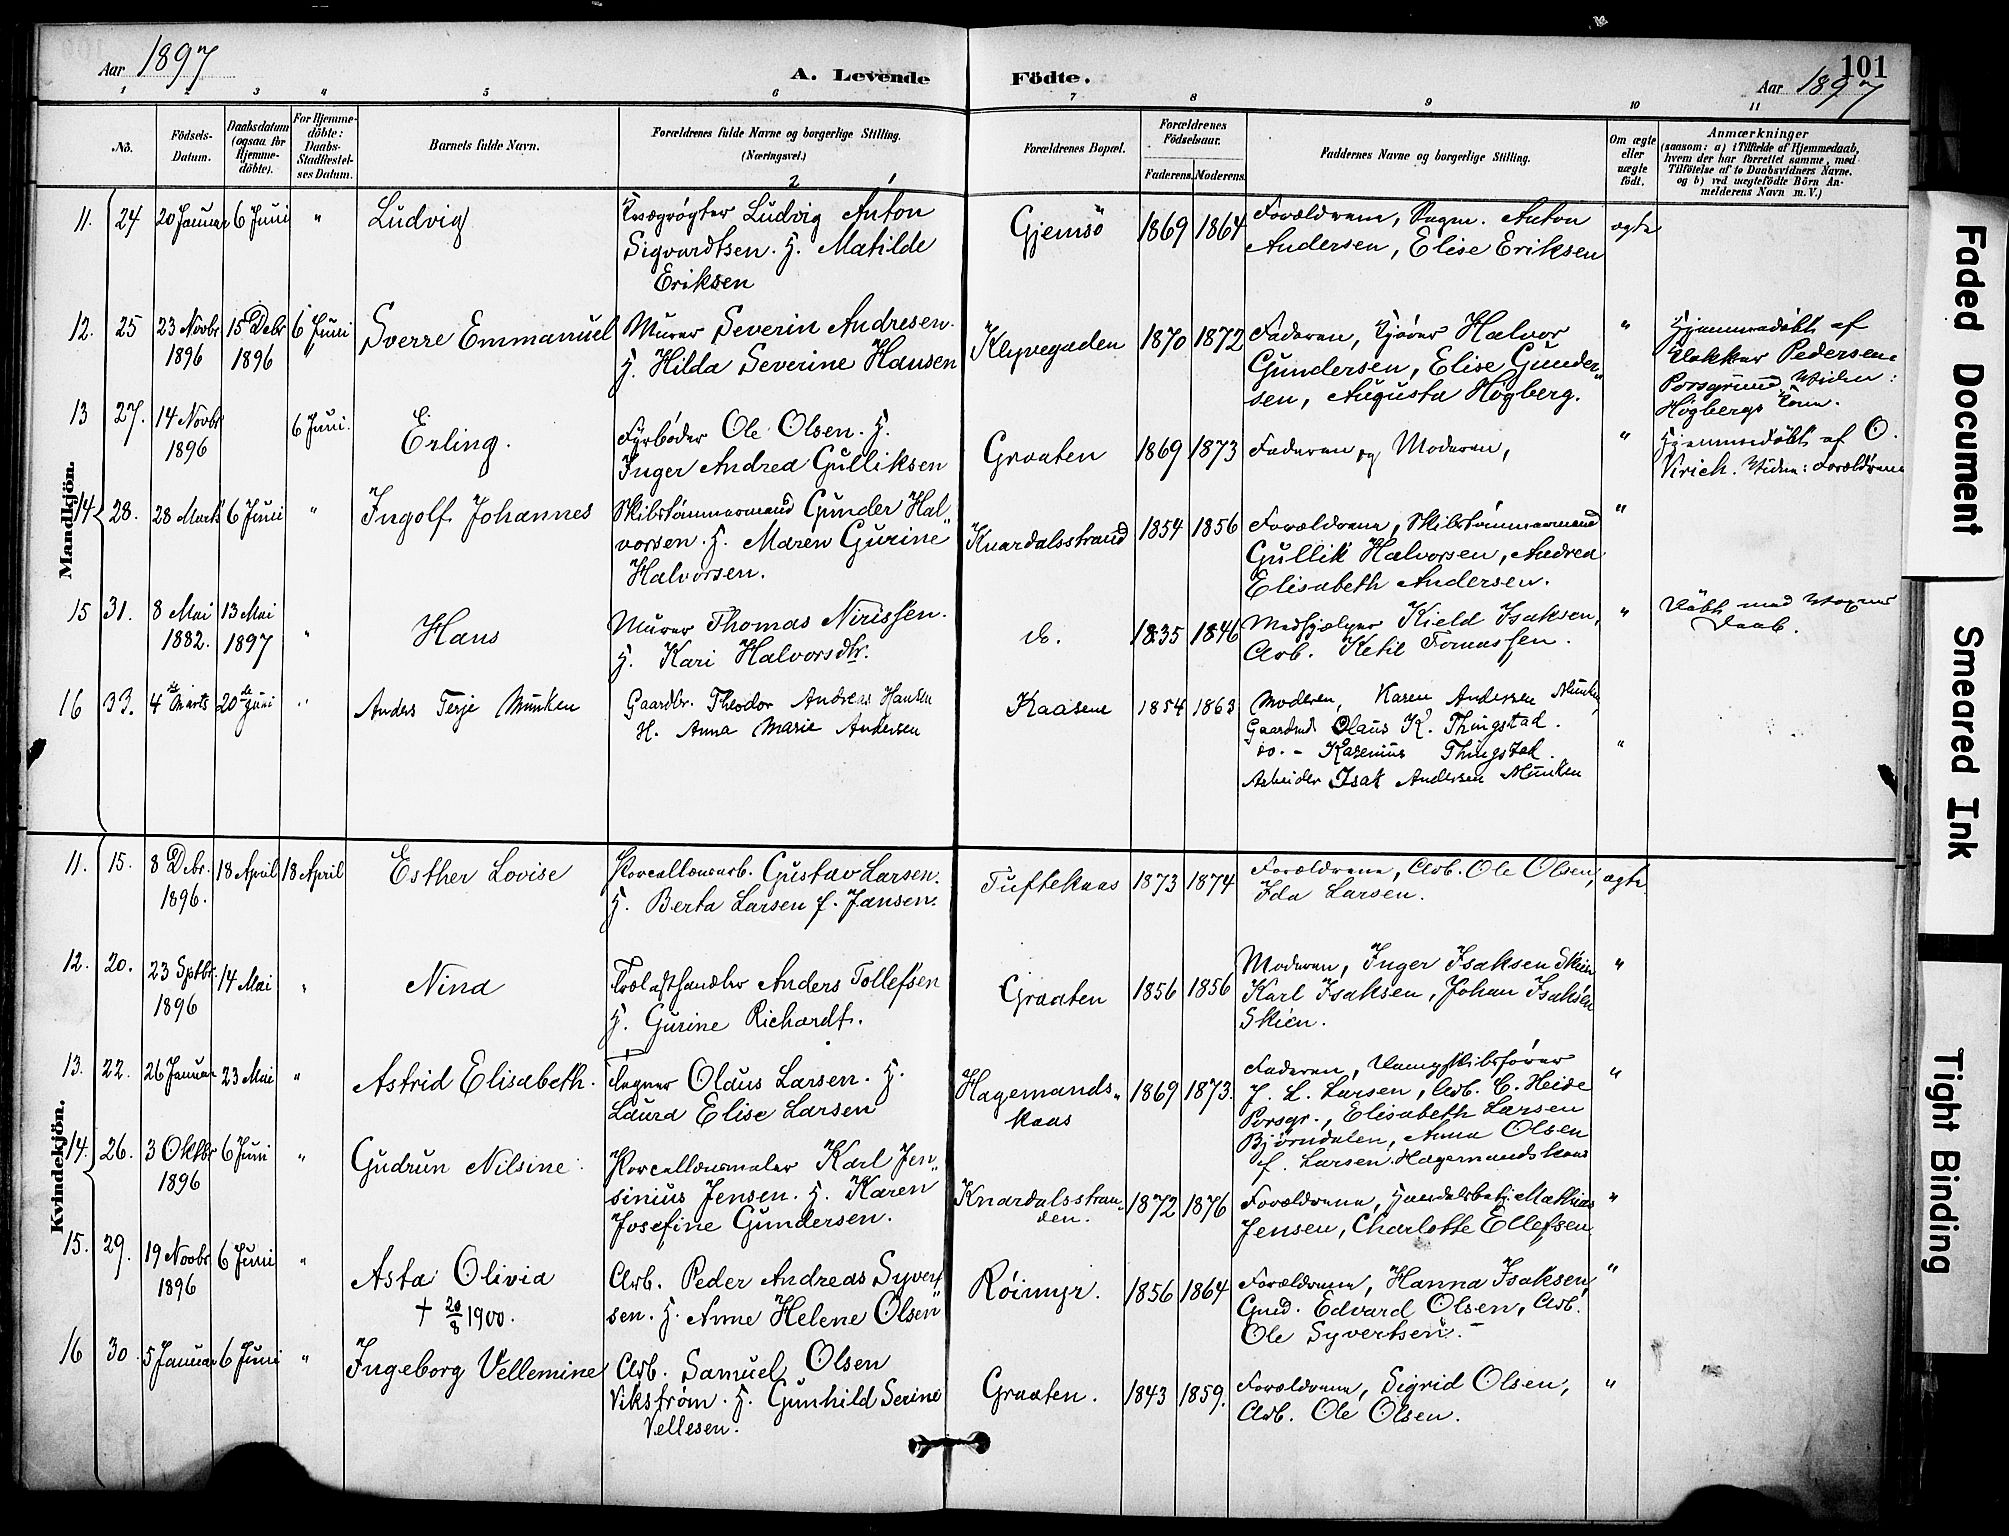 Aar 1897
A. Levende Födte.
Aar 1897
101
1 2 3 4 5 6 7 8 9 10 11
No.
Födsels-Datum.
Daabsdatum (ogsaa for Hjemme-döbte).
For Hjemme-döbte: Daabs-Stadfæstel-ses Datum.
Barnets fulde Navn.
Forældrenes fulde Navne og borgerlige Stilling. (Næringsvei.)
Forældrenes Bopæl.
Forældrenes Födselsaar.
Faderens. Moderens.
Faddernes Navne og borgerlige Stilling.
Om ægte eller uægte födt.
Anmærkninger
(saasom: a) i Tilfælde af Hjemmedaab,
hvem der har forrettet samme, med
Tilföielse af to Daabsvidners Navne,
og b) ved uægtefödte Börn An-
melderens Navn m. V.)
Mandkjön.
11. 24 20 Januar 6 Juni " Ludvig
Kreægrøgter Ludvig Anton
Sigvardtsen. H. Matilde
Eriksen
Gjemsö 1869 1864
Forældrene, Bagm. Anton
Andersen, Elise Eriksen
ægte
12. 25 23 Novbr 1896 15 Debr 1896 6 Juni Sverre Emmanuel
Murer Severin Andresen.
H. Hilda Severine Hansen
Klyvegaden 1870 1872
Faderen, Kjører Halvor
Gundersen, Elise Gunder-
sen, Augusta Högberg.
"
Hjemmedöbt af
Dokker Pedersen
Porsgrund Widen:
Högbergs Kone.
13 27. 14 Novbr 1896 6 Juni. Erling.
Fyrböder Ole Olsen. H.
Inger Andrea Gulliksen
Graaten 1869 1873
Faderen og Moderen,
"
Hjemmedöbt af O.
Virich. Widen: Forældrene
14 28. 28 Marts 6 Juni " Ingolf Johannes
Skibstömmermand Gunder Hal-
vorsen. H. Maren Gurine
Halvorsen.
Knardalsstrand 1854 1856
Forældrene, Skibstömmermand
Gullik Halvorsen, Andrea
Elisabeth Andersen.
"
15 31. 8 Mai 1882. 13 Mai 1897 " Hans
Murer Thomas Nirissen.
H. Kari Halvorsdtr.
do. 1835 1846
Medhjælper Kield Isaksen,
Arb. Ketil Tomassen.
"
Döbt med Voxnes
Daab.
16 33. 4de Marts 20de Juni " Anders Terje Munken
Gaardbr. Theodor Andreas Hansen
H. Anna Marie Andersen
Kaasene 1854 1863
Moderen, Karen Andersen Munken
Gaardmd. Olaus K. Thingstad.
do. - Kasenius Thingstad.
Arbeider Isak Andersen Munken
"
Kvindekjön.
11. 15. 8 Debr. 1896. 18 April 18 April Esther Lovise
Porcellænsarb. Gustav Larsen.
H. Berta Larsen f. Jansen.
Tuftekaas 1873 1874
Forældrene, Arb. Ole Olsen,
Ida Larsen.
ægte
12. 20. 23 Sptbr. 1896 14 Mai " Nina
Trælasthandler Anders Tollefsen
H. Gurine Richardt.
Graaten 1856 1856
Moderen, Inger Isaksen Skien
Karl Isaksen, Johan Isaksen
Skien.
"
13. 22. 26 Januar 23 Mai " Astrid Elisabeth.
Fogner Olaus Larsen. H.
Laura Elise Larsen
Hagemands-
kaas 1869 1873.
Faderen, Dampskibsförer
J. L. Larsen, Arb. C. Heide
Porsgr., Elisabeth Larsen
Björndalen, Anna Olsen
f. Larsen. Hagemandskaas
"
14. 26. 3 Oktbr 1896 6 Juni " Gudrun Nilsine
Porcellænsmaler Karl Jen-
sinius Jensen. H. Karen
Josefine Gundersen.
Knardalsstran-
den. 1872 1876
Forældrene, Handelsbetj. Mathias
Jensen, Charlotte Ellefsen
"
15. 29. 19 Novbr 1896 6 Juni " Asta Olivia
† 20/8 1900.
Arb. Peder Andreas Syvert-
sen. H. Anne Helene Olsen
Röimyr. 1856 1864
Forældrene, Hanna Isaksen,
Gmd. Edvard Olsen, Arb.
Ole Syvertsen.
"
16 30. 5 Januar 6 Juni " Ingeborg Vellemine
Arb. Samuel Olsen
Vikström. H. Gunhild Serine
Vellesen.
Graaten. 1843 1859.
Forældrene, Sigrid Olsen,
Arb. Ole Olsen.
"
Faded Document
Smeared Ink
Tight Binding